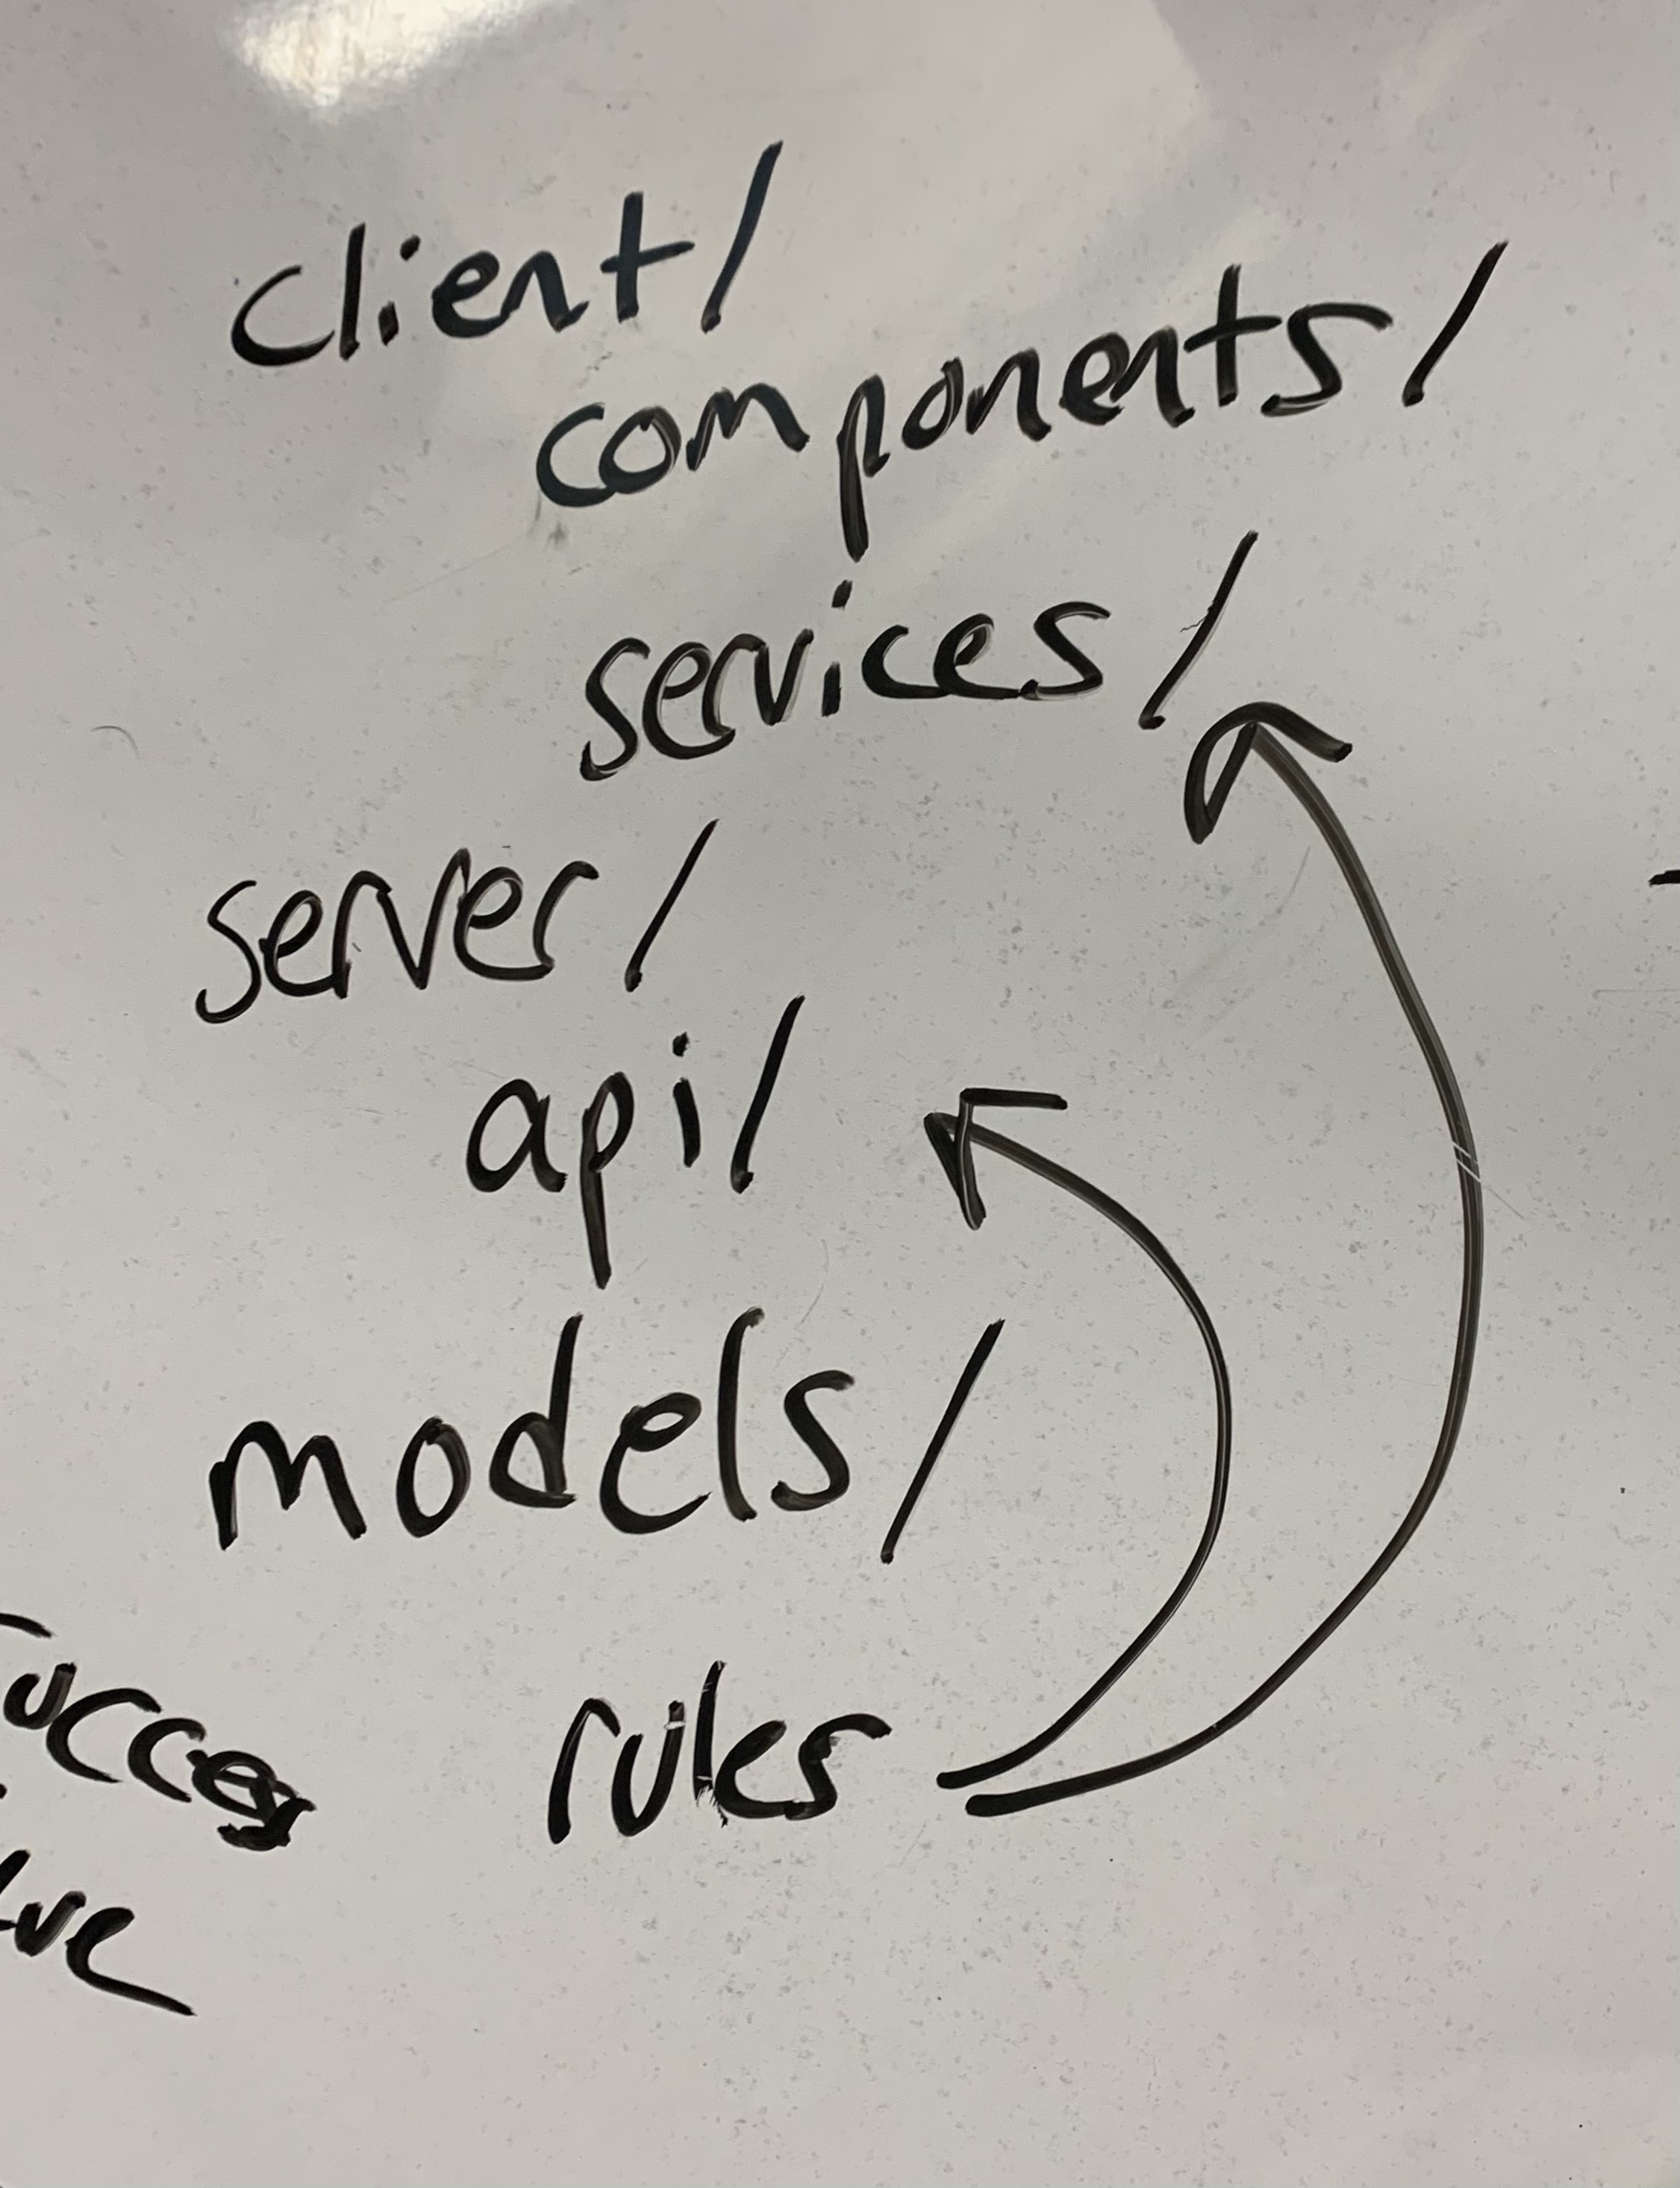 client/
components/
services/
server/
api/
models/
rules